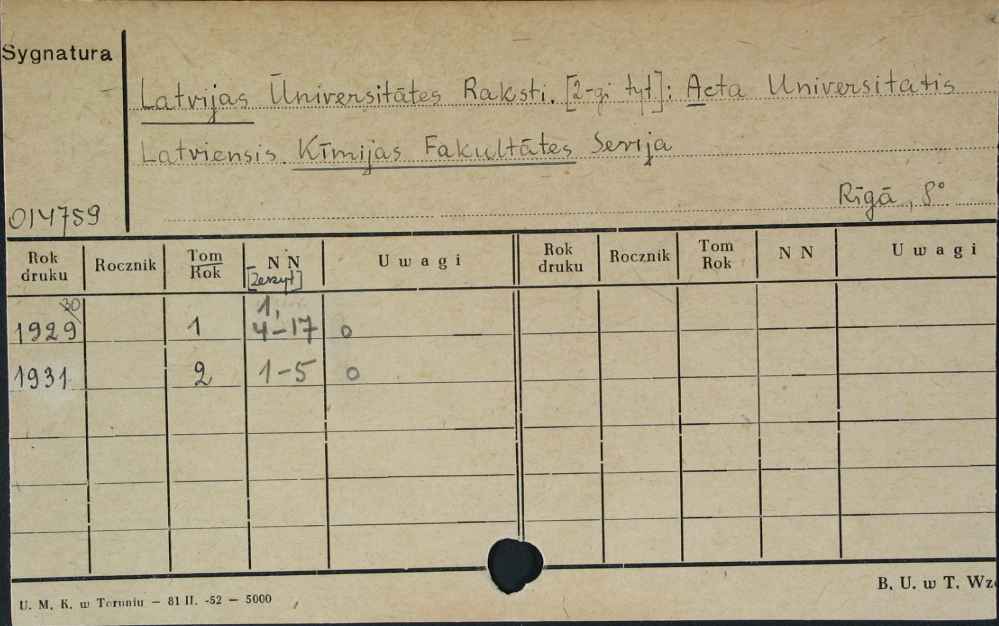 Sygnatura
Latvijas Ūniversitātes Raksti. [2-gi tyt]: Acta Universitatis
Latviensis. Ķīmijas Fakultātes Serija
Rīgā, 8°
014759
Rok druku Rocznik Tom Rok N N [Zeszyt] Uwagi Rok druku Rocznik Tom Rok N N Uwagi
1929/30 1 1, 4-17 o
1931 2 1-5 o
U. M. K. w Toruniu — 81 II. -52 — 5000
B. U. w T. Wz